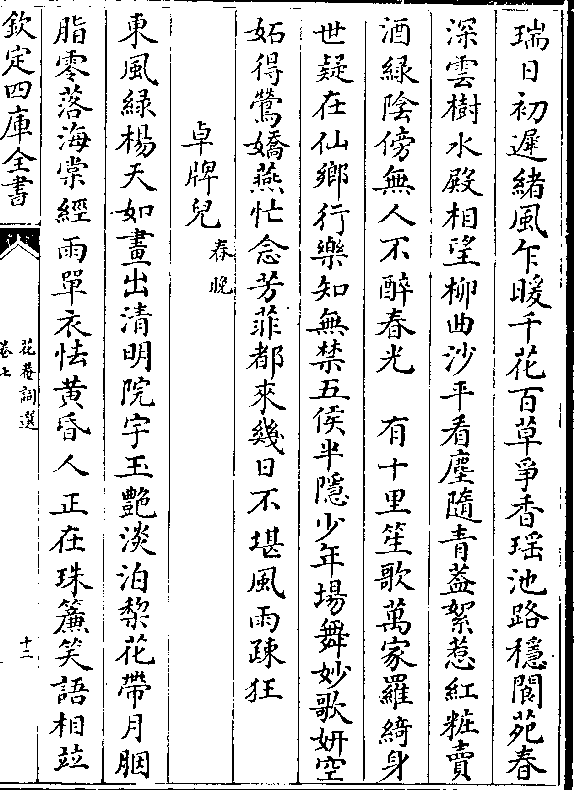 瑞日初遲緒風乍暖千花百草爭香瑶池路穩閬苑春
深雲樹水殿相望柳曲沙平看塵隨青葢絮惹紅粧賣
酒緑陰傍無人不醉春光　有十里笙歌萬家羅綺身
世疑在仙鄉行樂知無禁五侯半隱少年場舞妙歌妍空
妬得鶯嬌燕忙念芳菲都來幾日不堪風雨疎狂
卓牌兒春晚
東風緑楊天如畫出清明院宇玉艷淡泊梨花帶月胭
脂零落海棠經雨單衣怯黄昏人正在珠簾笑語相竝
欽定四庫全書
花菴詞選
卷七
十二